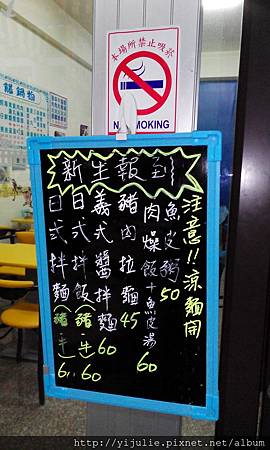 本場所禁止吸菸
NO SMOKING
新生報到
注意!!涼麵開
魚皮粥50
肉燥飯+魚皮湯60
豬肉拉麵45
義式醬拌麵60
日式拌飯(豬牛60
日式拌麵(豬牛60
http://yijulie.pixnet.net/album